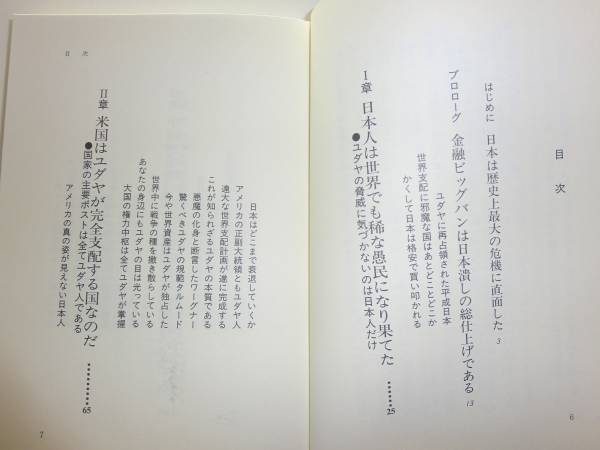 目次
はじめに 日本は歴史上最大の危機に直面した 3
プロローグ 金融ビッグバンは日本潰しの総仕上げである 13
ユダヤに再占領された平成日本
世界支配に邪魔な国はあとどことどこか
かくして日本は格安で買い叩かれる
I章 日本人は世界でも稀な愚民になり果てた
●ユダヤの脅威に気づかないのは日本人だけ………25
6
目次
日本はどこまで衰退していくか
アメリカの正副大統領ともユダヤ人
遠大な世界支配計画が遂に完成する
これが知られざるユダヤの本質である
悪魔の化身と断言したワーグナー
驚くべきユダヤの規範タルムード
今や世界資産はユダヤが独占した
世界中に戦争の種を撒き散らしている
あなたの身辺にもユダヤの目は光っている
大国の権力中枢は全てユダヤが掌握
II章 米国はユダヤが完全支配する国なのだ
●国家の主要ポストは全てユダヤ人である…………65
アメリカの真の姿が見えない日本人
7